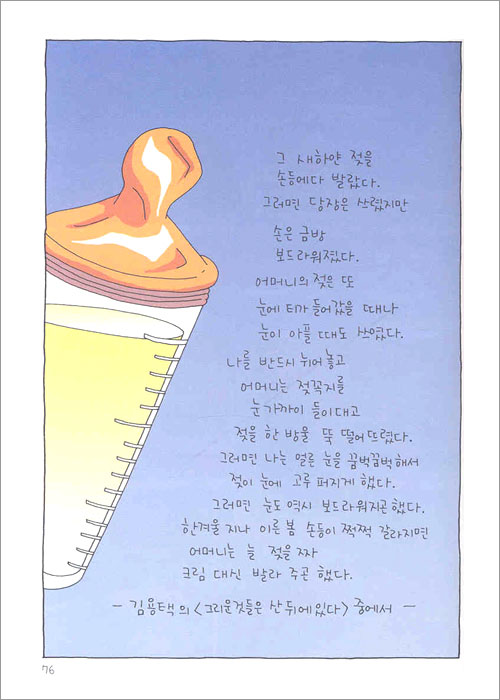 그 새하얀 젖을
손등에다 발랐다.
그러면 당장은 쓰렸지만
손은 금방
보드라워졌다.
어머니의 젖은 또
눈에 티가 들어갔을 때나
눈이 아플 때도 쓰였다.
나를 반드시 뉘어 놓고
어머니는 젖꼭지를
눈 가까이 들이대고
젖을 한 방울 뚝 떨어뜨렸다.
그러면 나는 얼른 눈을 끔벅끔벅해서
젖이 눈에 고루 퍼지게 했다.
그러면 눈도 역시 보드라워지곤 했다.
한겨울 지나 이른 봄 손등이 쩍쩍 갈라지면
어머니는 늘 젖을 짜
크림 대신 발라 주곤 했다.
— 김용택의 〈그리운것들은 산 뒤에 있다〉 중에서 —
76